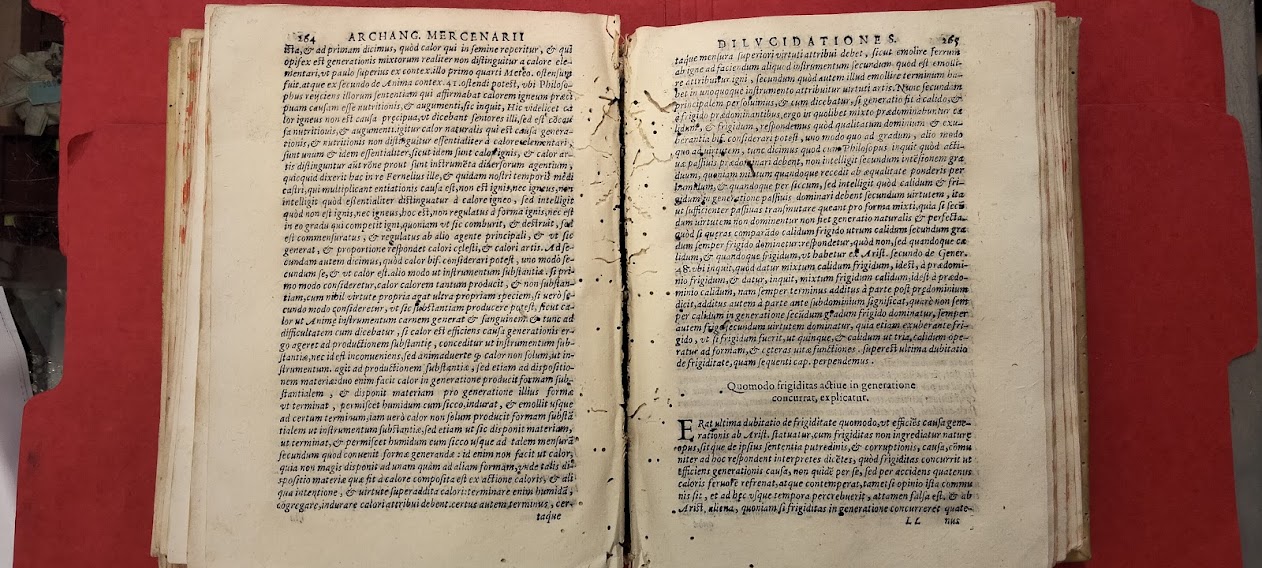 264 ARCHANG. MERCENARII
ista, & ad primam dicimus, quòd calor qui in semine reperitur, & qui
opifex est generationis mixtorum realiter non distinguitur a calore ele-
mentari, vt paulo superius ex contex. illo primo quarti Meteo. ostensum
fuit, atque ex secundo de Anima contex. 41. ostendi potest, vbi Philoso-
phus reijciens illorum sententiam qui affirmabat calorem igneum præci
puam causam esse nutritionis, & augumenti, sic inquit, Hic videlicet ca
lor igneus non est causa pręcipua, vt dicebant seniores illi, sed est cōcau
sa nutritionis, & augumenti. igitur calor naturalis qui est causa genera-
tionis, & nutritionis non distinguitur essentialiter à calore elementari,
sunt unum & idem essentialiter. sicut idem sunt calor ignis, & calor ar-
tis distinguntur aūt rōne prout sunt instrumēta diuersorum agentium,
quicquid dixerit hac in re Fernelius ille, & quidam nostri temporis medi
castri, qui multiplicant entia
tionis causa est, non est ignis, nec igneus, non
intelligit quòd essentialiter distinguatur à calore igneo, sed intelligit
quòd non est ignis, nec igneus, hoc est, non regulatus à forma ignis, nec est
in eo gradu qui competit igni, quoniam vt sic comburit, & destruit, sed
est commensuratus, & regulatus ab alio agente principali, & vt sic
generat, & proportione respondet calori cęlesti, & calori artis. Ad se-
cundam autem dicimus, quòd calor bif. considerari potest, uno modò se-
cundum se, & vt calor est. alio modo ut instrumentum substātiæ. si pri-
mo modo consideretur, calor calorem tantum producit, & non substan-
tiam, cum nihil virtute propria agat ultra propriam speciem, si uerò se-
cundo modo consideretur, vt sic substantiam producere potest, sicut ca-
lor ut Animę instrumentum carnem generat & sanguinem. & tunc ad
difficultatem cum dicebatur, si calor est efficiens causa generationis er-
go ageret ad productionem substantię, conceditur ut instrumentum sub-
stantiæ, nec id est inconueniens, sed animaduerte calor non solum, ut in-
strumentum. agit ad productionem substantiæ, sed etiam ad dispositio-
nem materiæ: duo enim facit calor in generatione producit formam sub-
stantialem, & disponit materiam pro generatione illius formæ
vt terminat, permiscet humidum cum sicco, indurat, & emollit usque
ad certum terminum, iam uerò calor non solum producit formam substā
tialem ut instrumentum substantiæ, sed etiam ut sic disponit materiam,
ut terminat, & permiscet humidum cum sicco usque ad talem mensurā
secundum quod conuenit formæ generandæ: id enim non facit ut calor,
quia non magis disponit ad unam quàm ad aliam formam, vnde talis di-
spositio materiæ quæ fit à calore composita est ex actione caloris, & ali
qua intentione, & uirtute superaddita calori: terminare enim humidū,
cogregare, indurare calori attribui debent. certus autem terminus, cer
taque
DILVCIDATIONES. 265
taque mensura superiori virtuti attribui debet, sicut emolire ferrum
ab igne ad faciendum aliquod instrumentum secundum quod est emolli-
re attribuitur igni, secundum quòd autem illud emollire terminum ha-
bet in unoquoque instrumento attribuitur uirtuti artis. Nunc secundam
principalem persoluimus, & cum dicebatur, si generatio fit à calido, &
à frigido prædominantibus, ergo in quolibet mixto prædominabuntur ca
lidum, & frigidum, respondemus quòd qualitatum dominium & exu-
berantia bif. considerari potest, uno modo quo ad gradum, alio modo
quo ad uirtutem, tunc dicimus quod cum Philosopus inquit quòd acti-
uæ passiuis prædominari debent, non intelligit secundum intēsionem gra
duum, quoniam mixtum quandoque recedit ab æqualitate ponderis per
humidum, & quandoque per siccum, sed intelligit quòd calidum & fri-
gidum in generatione passiuis dominari debent secundum uirtutem, ita
ut sufficienter passiuas transmutare queant pro forma mixti, quia si secū
dum uirtutem non dominentur non fiet generatio naturalis & perfecta.
quòd si queras comparādo calidum frigido utrum calidum secundum gra
dum semper frigido dominetur: respondetur, quòd non, sed quandoque ca
lidum, & quandoque frigidum, vt habetur ex Arist. secundo de Gener.
48. vbi inquit, quòd datur mixtum calidum frigidum, idest, à prædomi-
nio frigidum, & datur, inquit, mixtum frigidum calidum, idest à prædo-
minio calidum, nam semper terminus additus à parte post prędominium
dicit, additus autem à parte ante subdominium significat, quarè non sem
per calidum in generatione secūdum gradum frigido dominatur, semper
autem frigido secundum uirtutem dominatur, quia etiam exuberante fri-
gido, vt si frigidum fuerit, ut quinque, & calidum ut tria, calidum ope-
ratur ad formam, & cęteras uitæ functiones. superest ultima dubitatio
de frigiditate, quam sequenti cap. perpendemus.
Quomodo frigiditas actiue in generatione
concurrat, explicatur.
ERat ultima dubitatio de frigiditate quomodo, vt efficiēs causa gene-
rationis ab Arist. statuatur, cum frigiditas non ingrediatur naturę
opus, sitque de ipsius sententia putredinis, & corruptionis, causa, cōmu
niter ad hoc respondent interpretes dicētes, quòd frigiditas concurrit ut
efficiens generationis causa, non quidē per se, sed per accidens quatenus
caloris feruorē refrenat, atque contemperat, tametsi opinio ista commu
nis sit, et ad hęc vsque tempora percrebuerit, attamen falsa est, & ab
Arist. aliena, quoniam si frigiditas in generatione concurreret quate-
LL nus